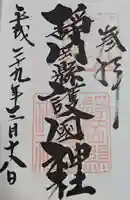 奉拝
静岡縣護國神社
平成二十九年十二月十八日